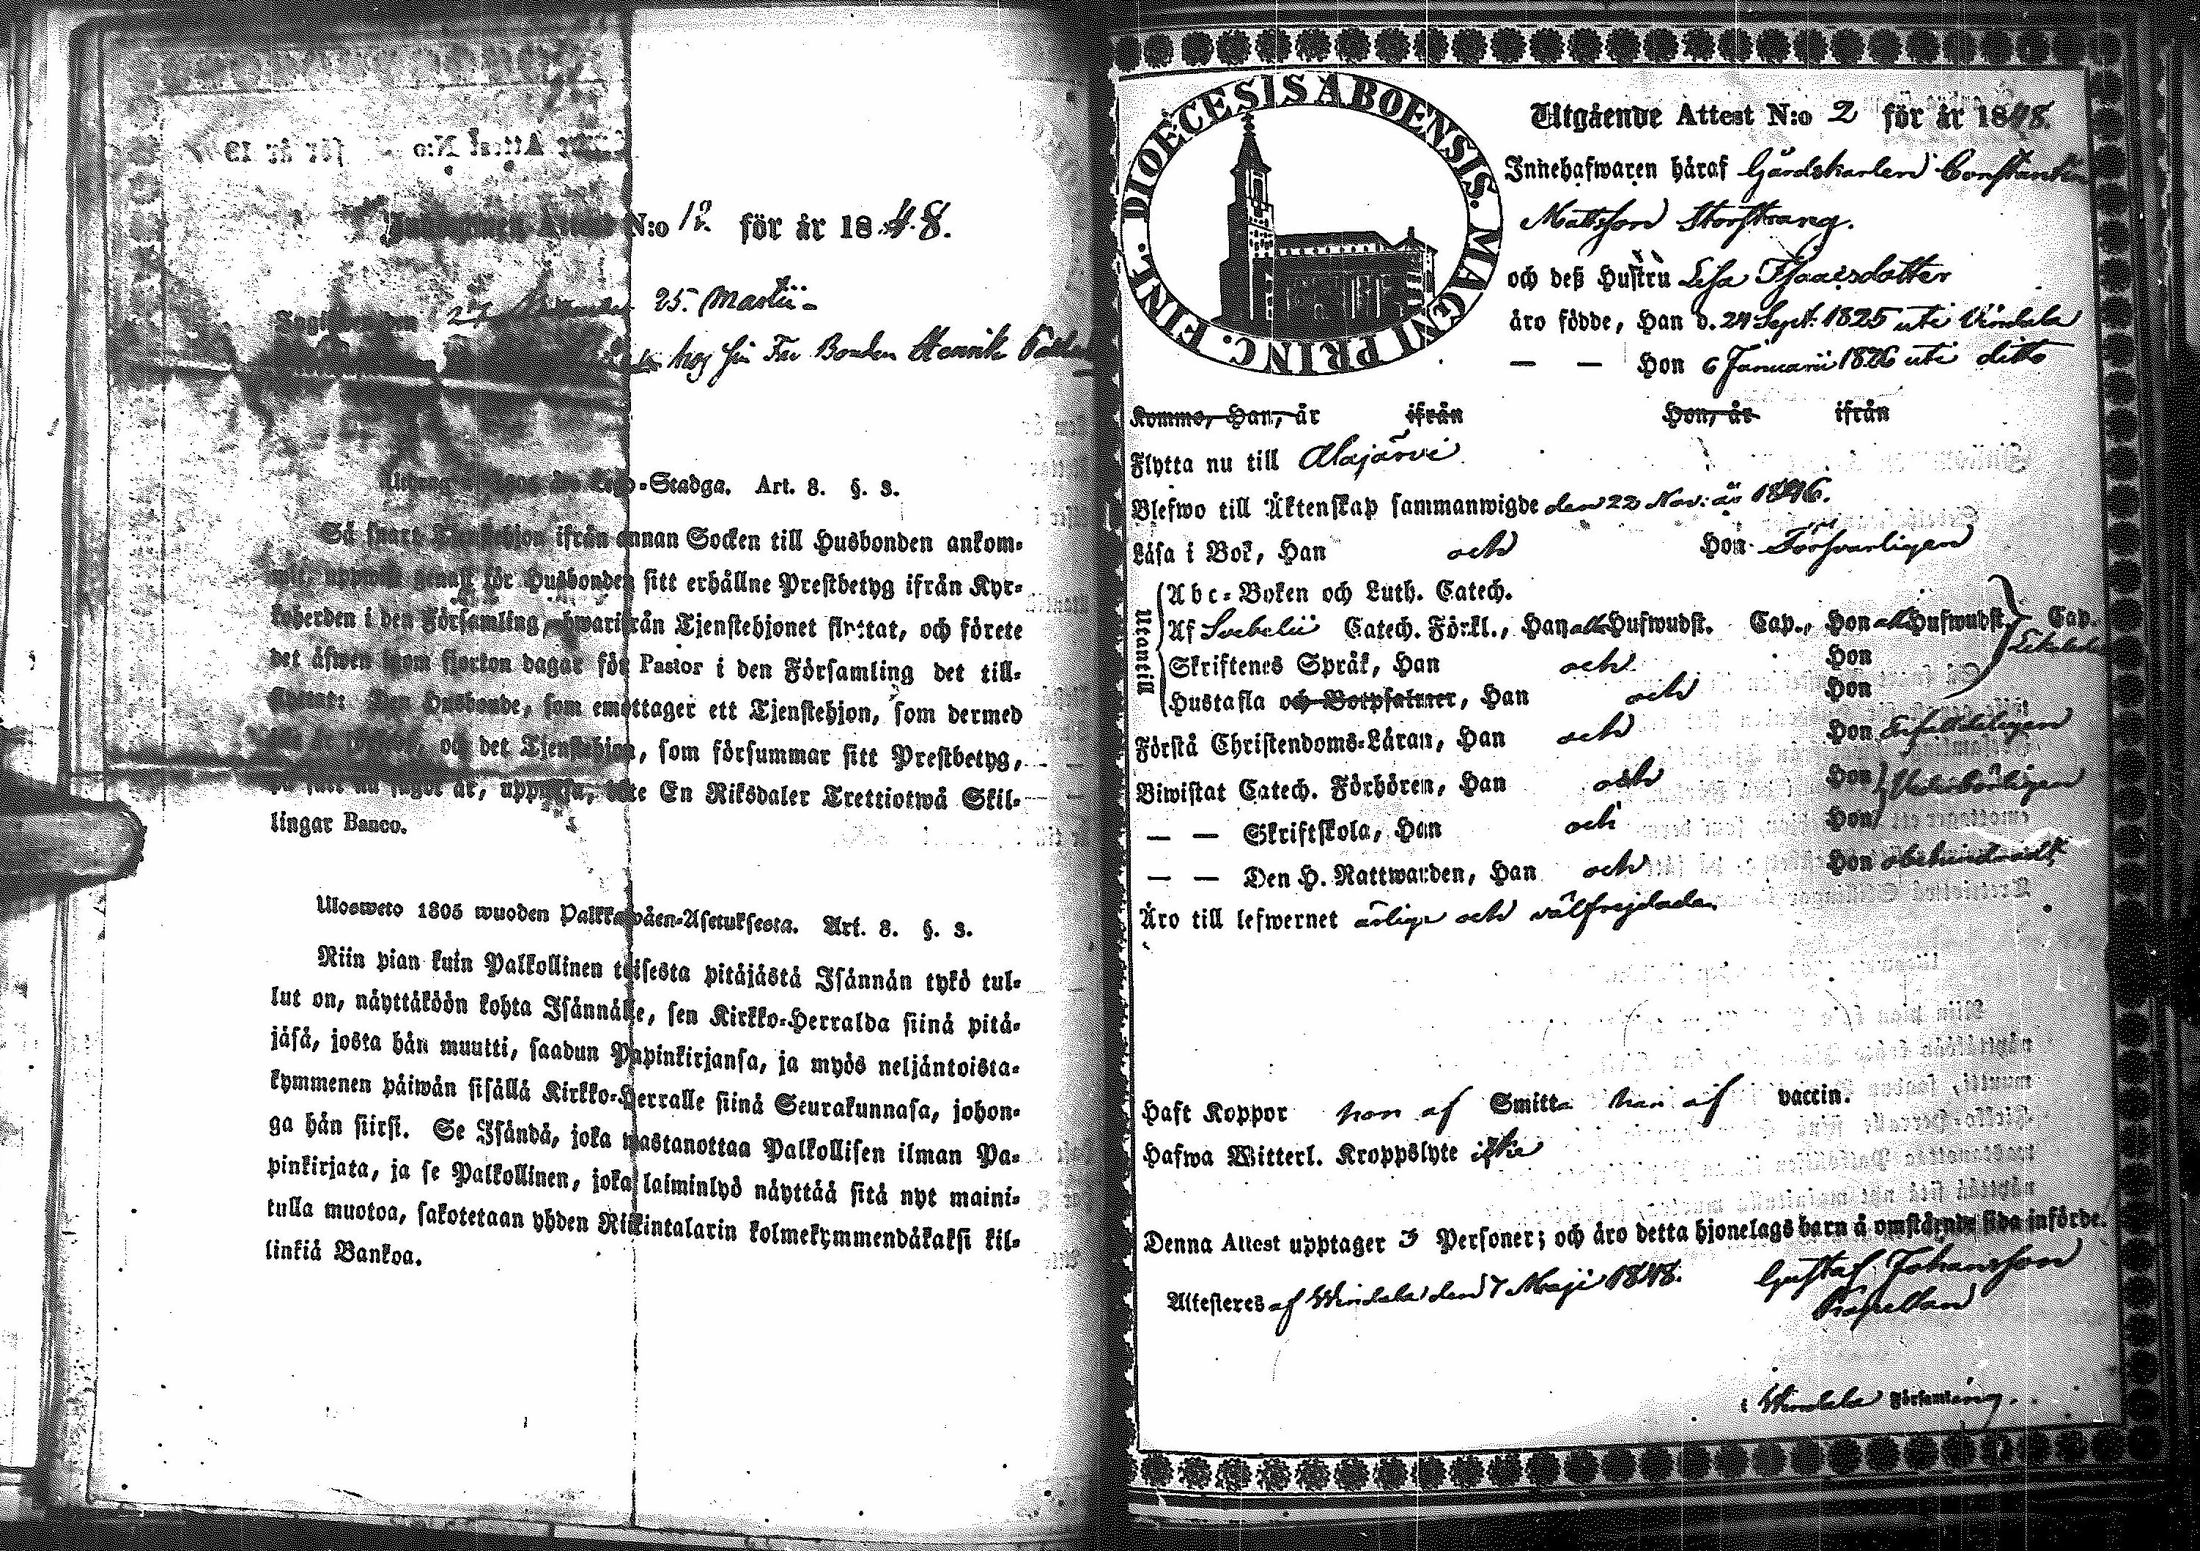 N:o 12 för år 1848.
25. Martii
hos sin Far Bonden Henrik
-Stadga. Art. 8. §. 3.
Så snart Tjenstehjon ifrån annan Socken till Husbonden ankom-
mit, uppwise genast för Husbonden sitt erhållne Prestbetyg ifrån Kyr-
koherden i den Församling hwarifrån Tjenstehjonet flyttat, och förete
det äfwen inom fjorton dagar för Pastor i den Församling det till-
flyttat: Den Husbonde, som emottager ett Tjenstehjon, som dermed
och det Tjenstehjon, som försummar sitt Prestbetyg,
på sätt nu sagdt är, uppwisa, böte En Riksdaler Trettiotwå Skil-
lingar Banco.
Ulosweto 1805 wuoden Palkkawäen-Asetuksesta. Art. 8. §. 3.
Niin pian kuin Palkollinen toisesta pitäjästä Isännän tykö tul-
lut on, näyttäköön kohta Isännälle, sen Kirkko-Herralda siinä pitä-
jäsä, josta hän muutti, saadun Papinkirjansa, ja myös neljäntoista-
kymmenen päiwän sisällä Kirkko-Herralle siinä Seurakunnasa, johon-
ga hän siirsi. Se Isändä, joka wastanottaa Palkollisen ilman Pa-
pinkirjata, ja se Palkollinen, joka laiminlyö näyttää sitä nyt maini-
tulla muotoa, sakotetaan yhden Riikintalarin kolmekymmendäkaksi kil-
linkiä Bankoa.
DIOECESIS ABOENSIS. MAGNI PRINC. FINL.
Utgående Attest N:o 2 för år 1848.
Innehafwaren häraf Gårdskarlen Constantin
Mattsson Storstrang.
och deß Hustru Lisa Isaacsdotter
äro födde, Han d. 24 Sept. 1825 uti Vindala
— — Hon 6 Januarii 1826 uti ditto
Komme, Han, år ifrån Hon, år ifrån
Flytta nu till Alajärvi
Blefwo till Äktenskap sammanwigde den 22 Nov. år 1846.
Läsa i Bok, Han och Hon Försvarligen
Utantill
Abc-Boken och Luth. Catech.
Af Svebelii Catech. Förkl., Han alla Hufwudst. Cap., Hon alla Hufwudst. Cap.
Skriftenes Språk, Han och Hon
Hustafla och Botpsalmer, Han och Hon
Förstå Christendoms-Läran, Han och Hon Enfaldeligen
Biwistat Catech. Förhören, Han och Hon Vederbörligen
— — Skriftskola, Han och Hon
— — Den H. Nattwarden, Han och Hon obehindradt
Äro till lefwernet ärlige och välfrejdade.
Haft Koppor hon af Smitta han af vaccin.
Hafwa Witterl. Kroppslyte icke
Denna Attest upptager 3 Personer; och äro detta hjonelags barn å omstående sida införde.
Attesteras af Windala den 7 Maji 1848. Gustaf Johansson
Kapellan
i Windala Församling.